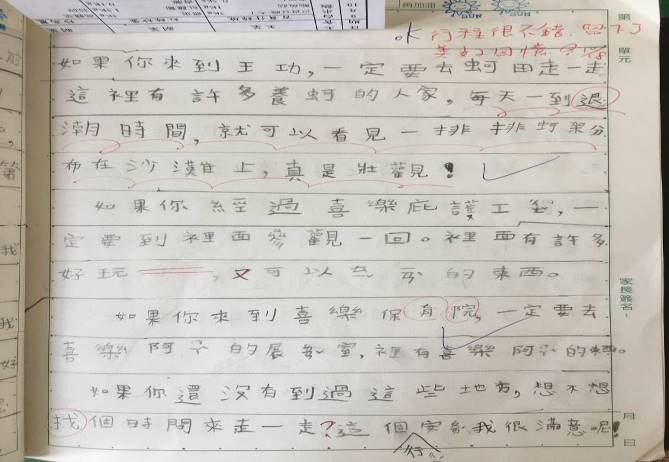 再加油
第
單元
ok 行程很不錯.留下了
美好回憶
如果你來到王功,一定要去蚵田走一走
這裡有許多養蚵的人家,每天一到退
潮時間,就可以看見一排排蚵架分
布在沙漠上,真是壯觀!
如果你經過喜樂庇護工
定要到裡面參觀一回。裡面有許多
好玩 ,又可以 的東西。
如果你來到喜樂保育院,一定要去
喜樂阿 的展 室,裡有喜樂阿 的 。
如果你還沒有到過這些地方,想不想
找個時間來走一走?這個 我很滿意喔!
家長簽名:
月
日